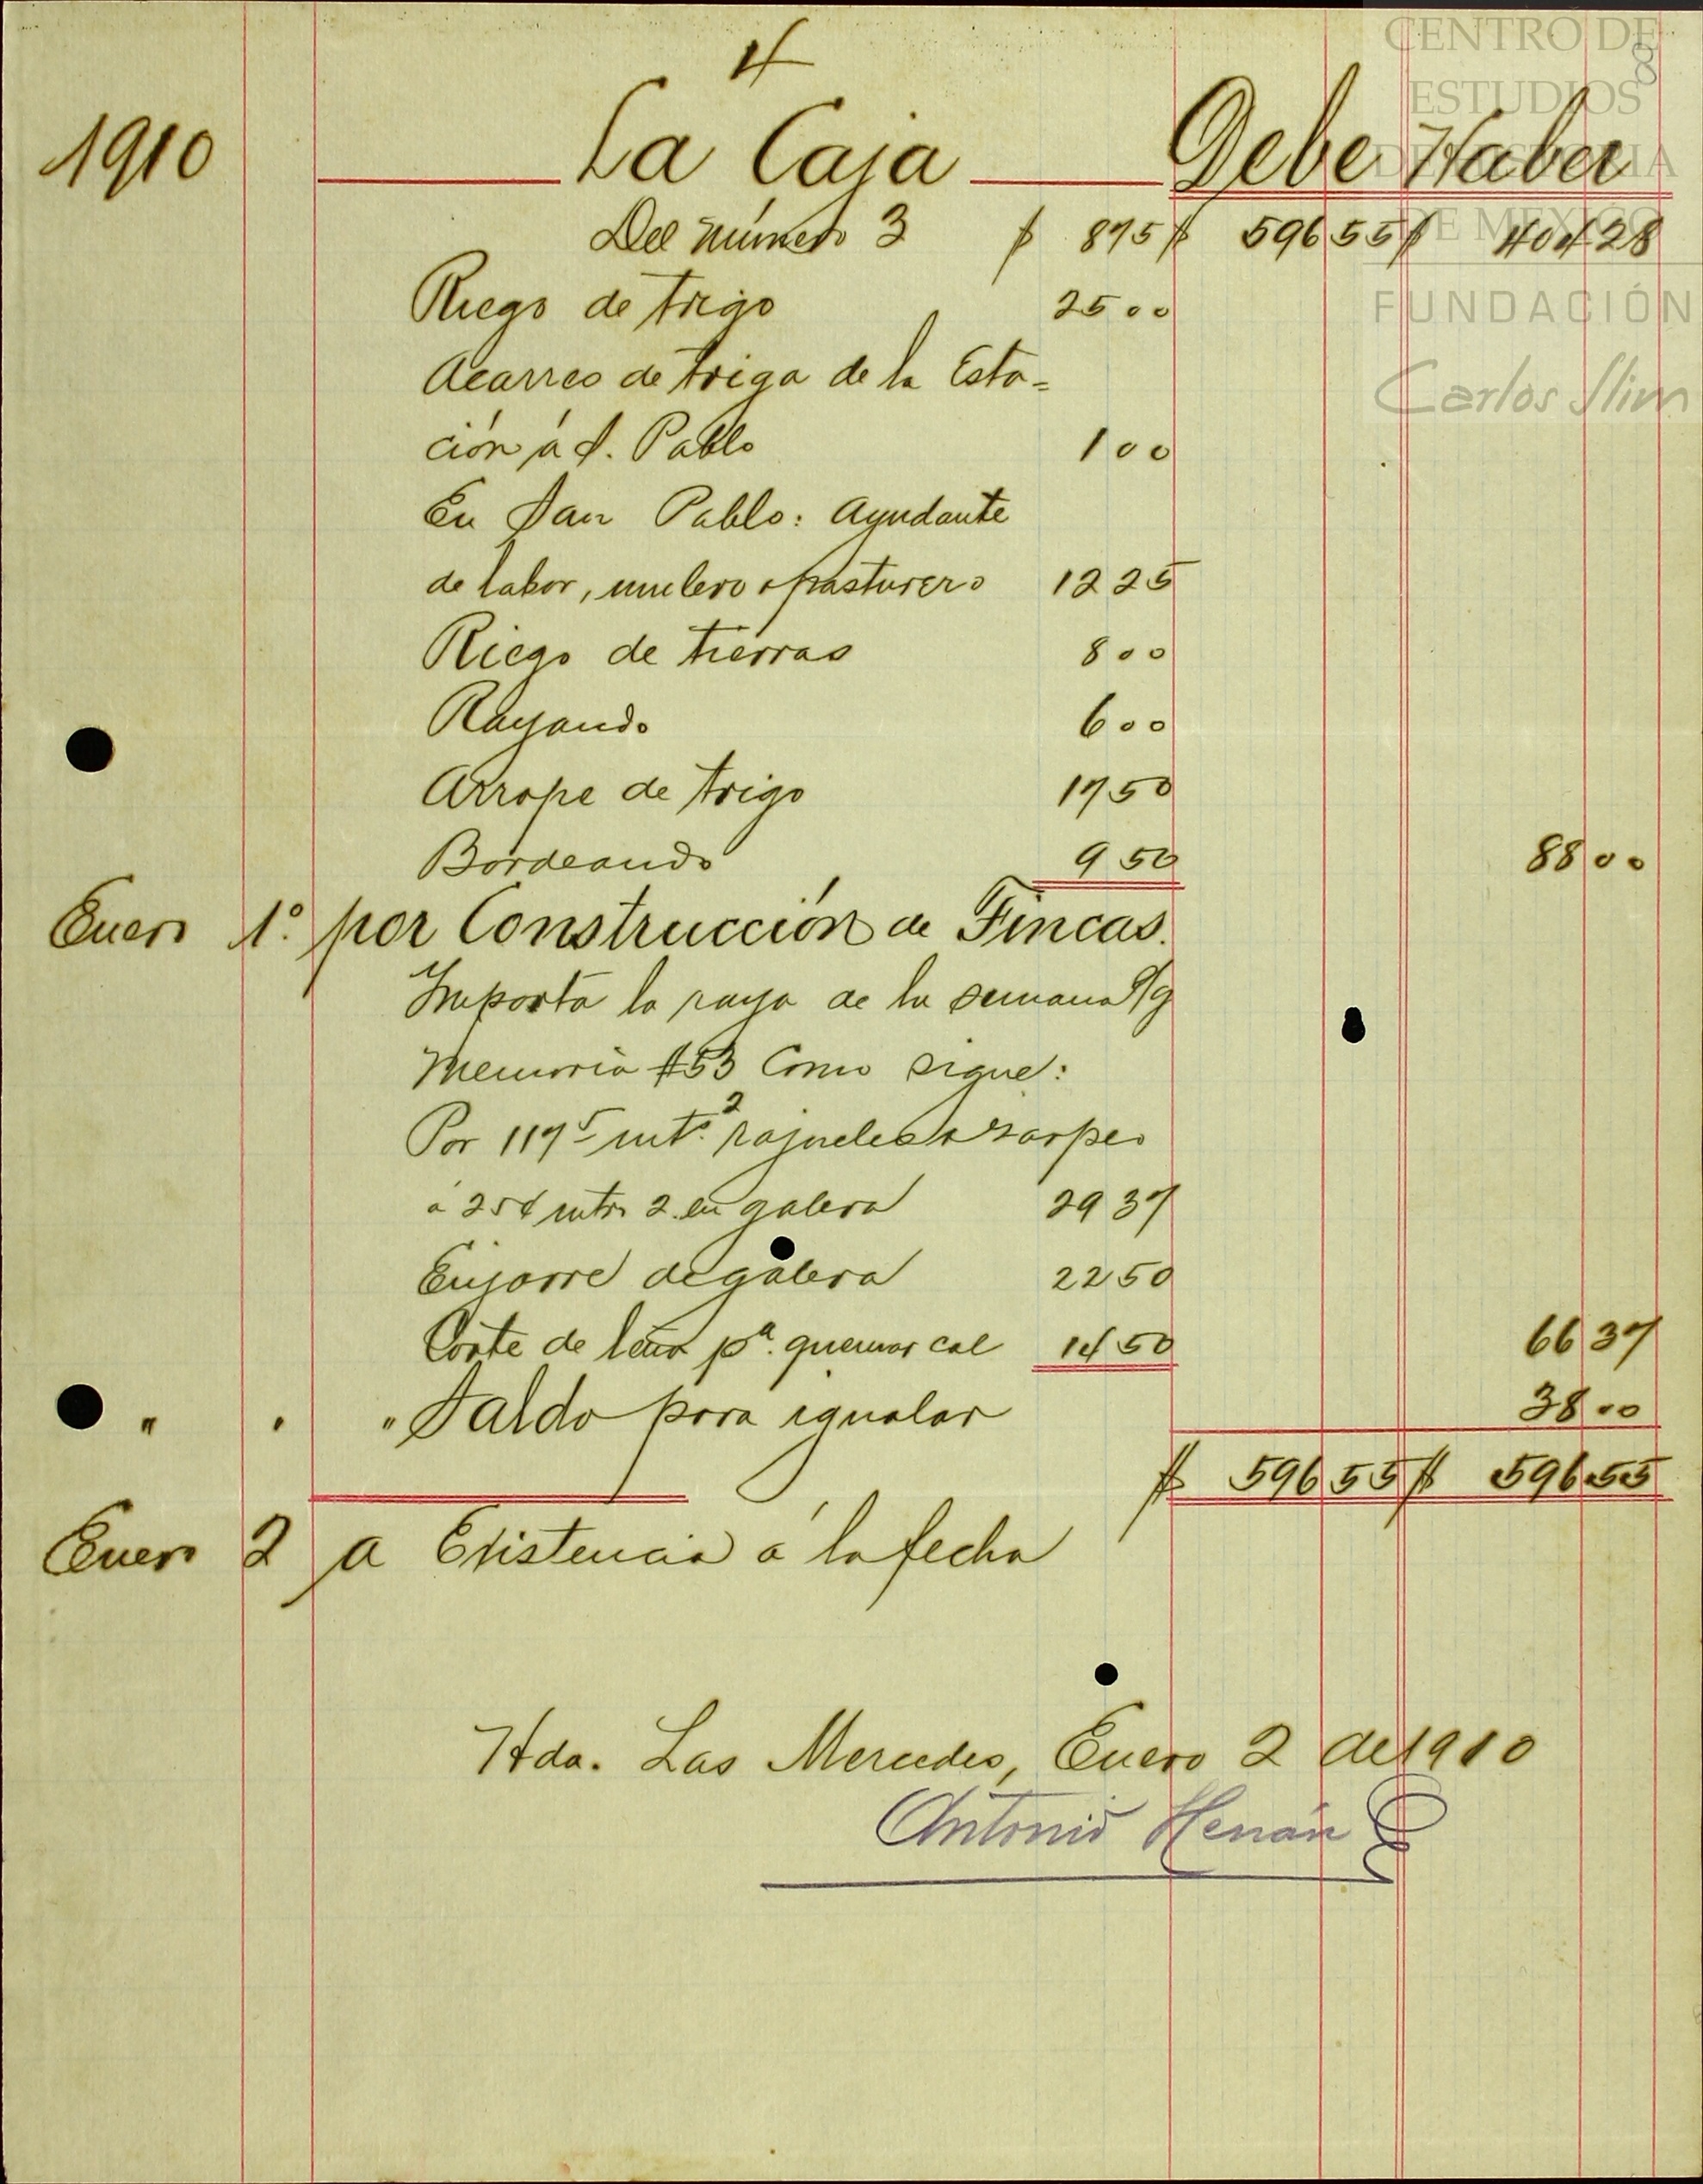 4
8
CENTRO DE
ESTUDIOS
DE HISTORIA
DE MEXICO
FUNDACIÓN
Carlos Slim
1910 La Caja Debe Haber
Del número 3 $ 875 $ 596 55 $ 404 18
Riego de trigo 25 00
Acarreo de trigo de la Esta=
ción á S. Pablo 1 00
En San Pablo: Ayudante
de labor, mulero pasturero 12 25
Riego de tierras 8 00
Rayando 6 00
Arrope de trigo 17 50
Bordeando 9 50 88 00
Enero 1º por Construcción de Fincas.
Importa la raya de la semana s/g
Memoria #53 Como sigue:
Por 117 5 mts. 2 rajueleo zarpeo
a 25¢ mtr. 2. en galera 29 37
Enjarre de galera 22 50
Corte de leña pª. quemar cal 14 50 66 37
" " " Saldo para igualar 38 00
$ 596 55 $ 596 55
Enero 2 a Existencia á la fecha
Hda. Las Mercedes, Enero 2 de 1910
Antonio Henán